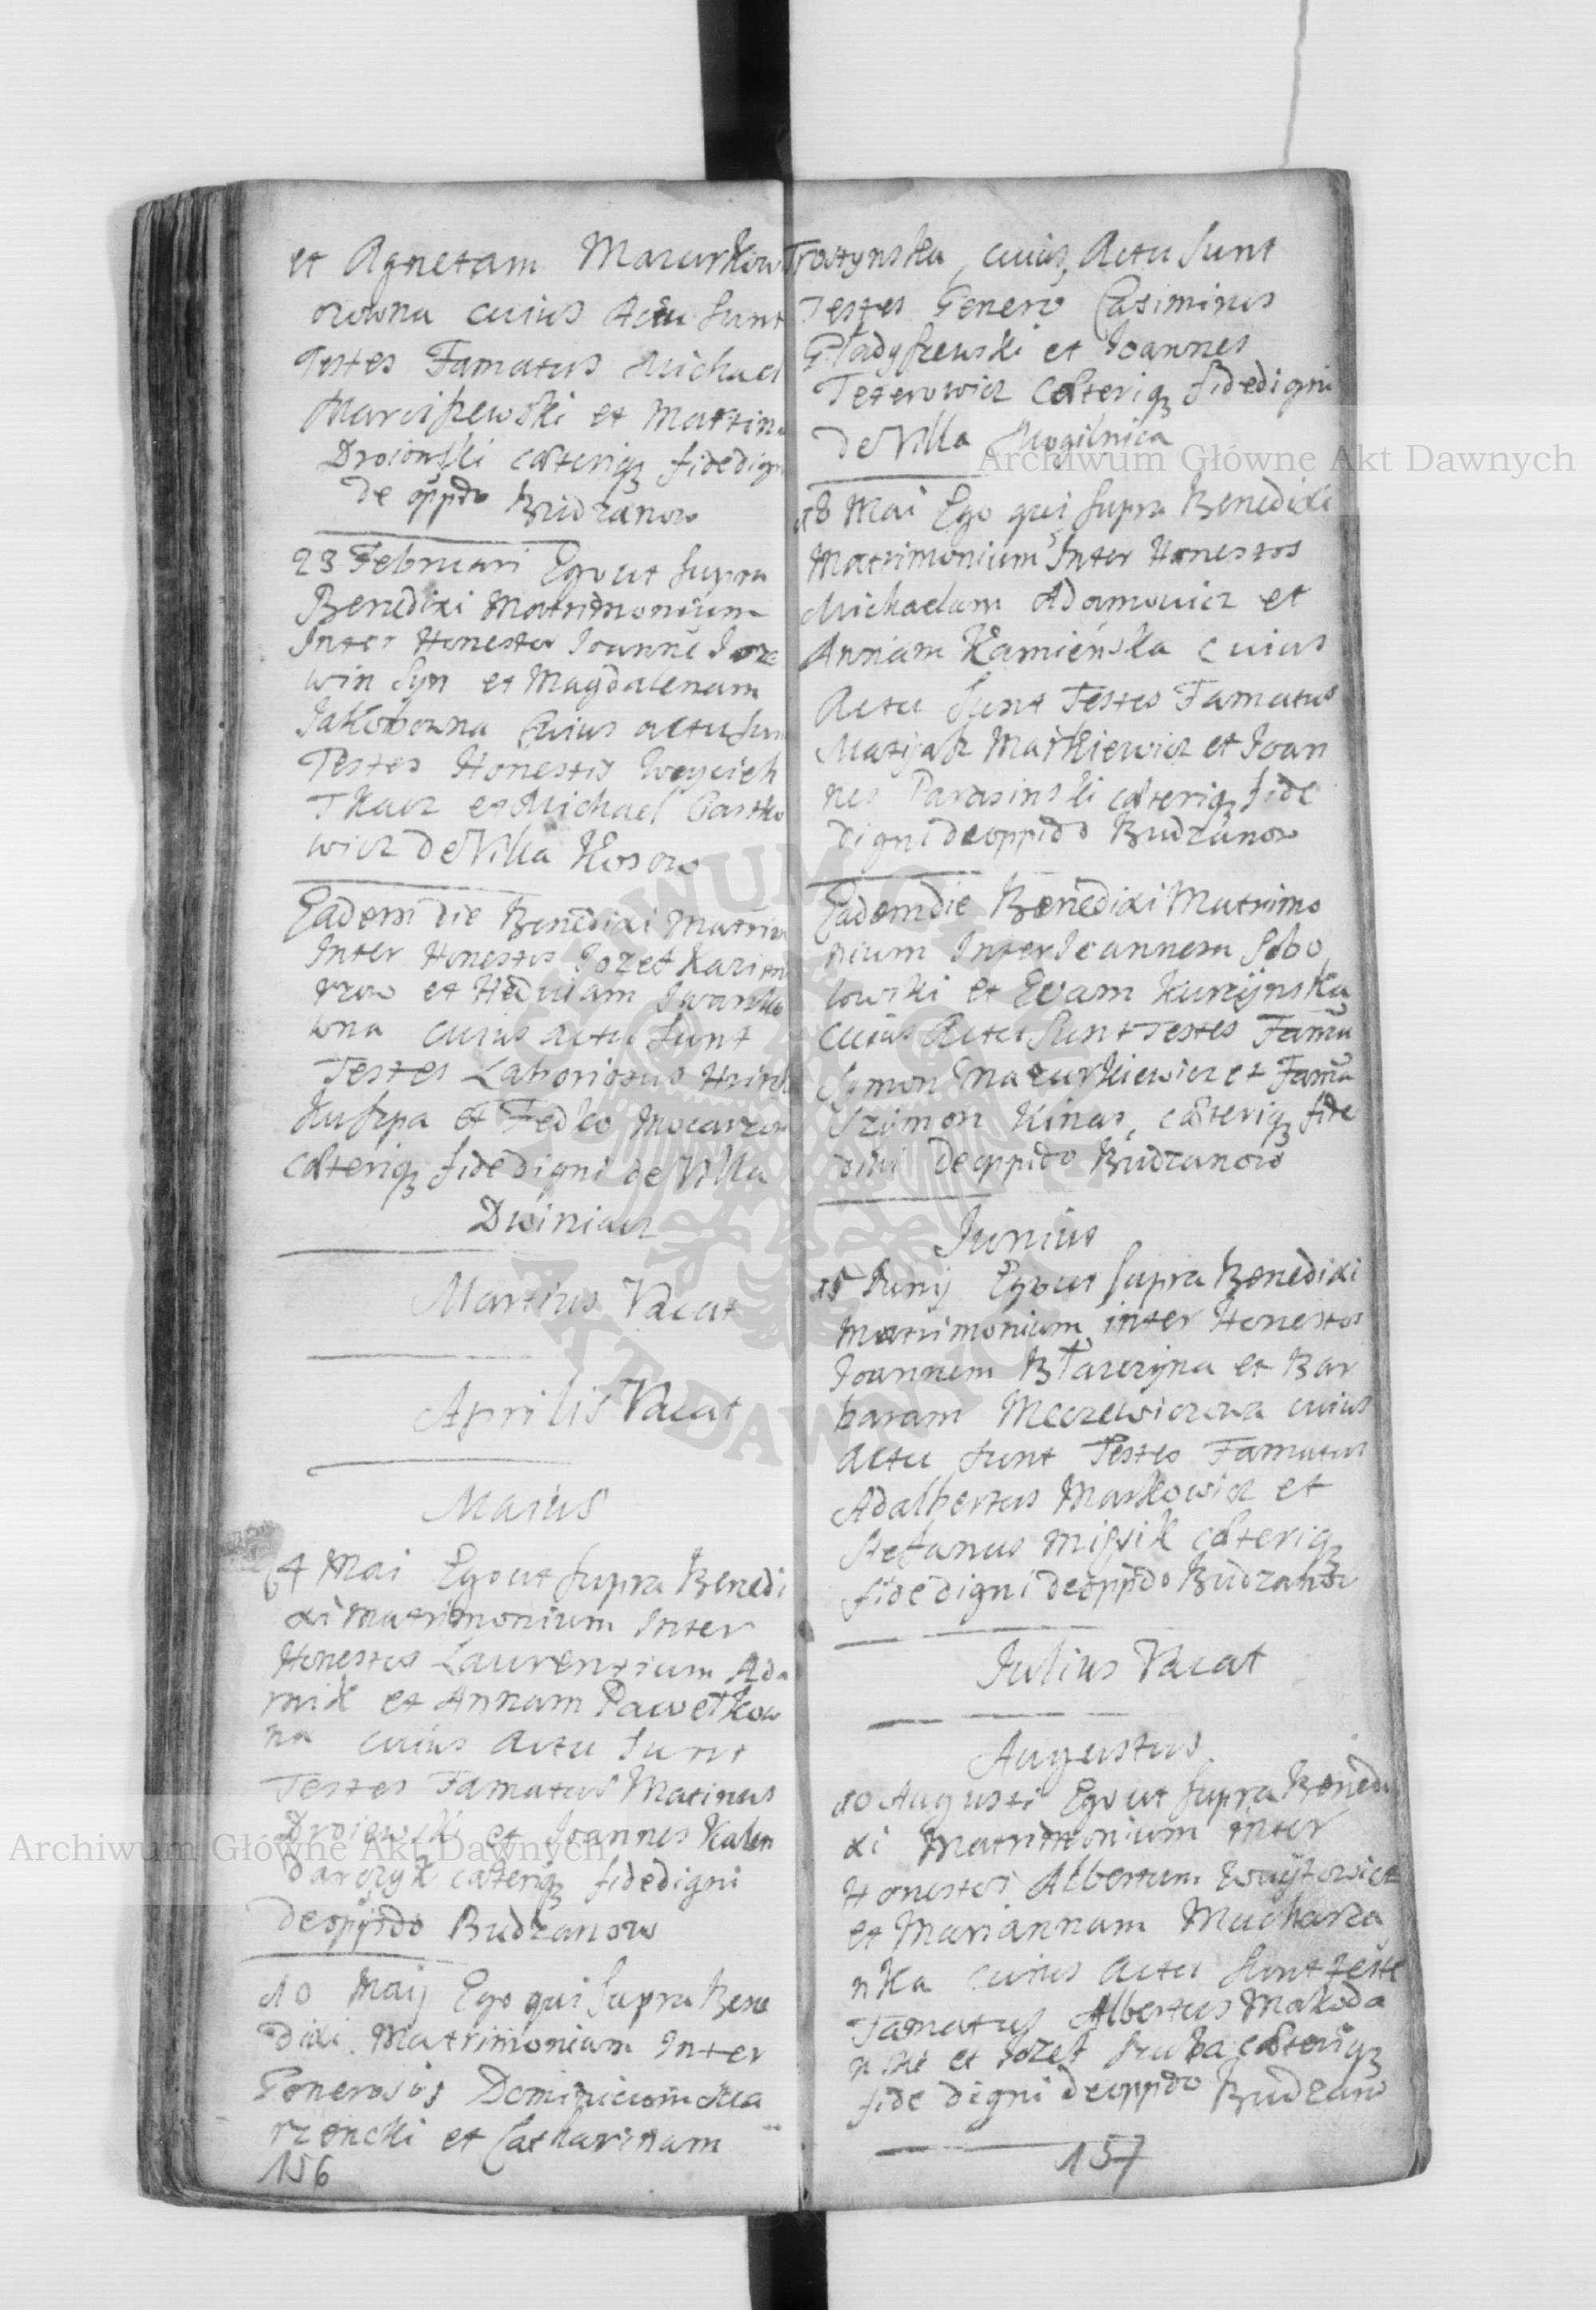 et Agnetam Mazurkow
owna cuius Actu sunt
Testes Famatus Michael
Marciszewski et Martin
Droionski caeteriq fidedign
de oppido Budzanow
23 Februari Ego ut supra
Benedixi Matrimonium
Inter Honestos Joanne
win Syn et Magdalenam
Jakobowna Cuius actu sun
Testes Honestis Woyciech
Tkacz et Michael
wicz de Villa Kosow
Eadem die Benedixi Matrim
Inter Honestos Jozef
et Hedwiam Iwanko
wna cuius actu sunt
Testes Laboriosus Hrinko
Kuszpa et Fedko
Caeteriq fide digni de Villa
Dwiniacz
Martius Vacat
Aprilis Vacat
Maius
4 Mai Ego ut supra Benedi
xi Matrimonium Inter
Honestos Laurentium Ada
mik et Annam Pawełkow
na cuius Actu Sunt
Testes Famatus Matinus
et Joannes Kalen
darczyk caeteriq fidedigni
de oppido Budzanow
10 Maij Ego qui supra Bene
dixi Matrimonium Inter
Generosos Dominicum
et Catharinam
156
Trostynska, cuius Actu sunt
Testes Genero Casimirus
Gładyszewski et Joannes
Teterowicz caeteriq fidedigni
de Villa Mogilnica
18 Mai Ego qui supra Benedixi
Matrimonium Inter Honestos
Michaelam Adamowicz et
Annam Kamieńska Cuius
Actu sunt Testes Famatus
Matyasz Matkiewicz et Joan
nes Parasinski caeteriq fide
digni de oppido Budzanow
Eadem die Benedixi Matrimo
nium Inter Joannem Sobo
lowski et Evam
Cuius Actu sunt Testes Fama
Symon Mazurkiewicz et Fama
Szymon Kinas, caeteriq fide
digni de oppido Budzanow
Junius
15 Junij Ego ut supra Benedixi
Matrimonium inter Honestos
Joannem Błazezyna et Bar
baram cuius
Actu sunt Testes Famatus
Adalbertus Markowicz et
Stefanus Misik caeteriq
fide digni de oppido Budzanow
Julius Vacat
Augustus
10 Augusti Ego ut supra Benedi
xi Matrimonium inter
Honestos Albertum Woytowicz
et Mariannam Mucharza
nka cuius actu sunt teste
Famatus Albertus Makoda
nski et Jozef caeteriq
fide digni de oppido Budzanow
157
Archiwum Główne Akt Dawnych
Archiwum Główne Akt Dawnych
ARCHIWUM GŁÓWNE
AKT DAWNYCH